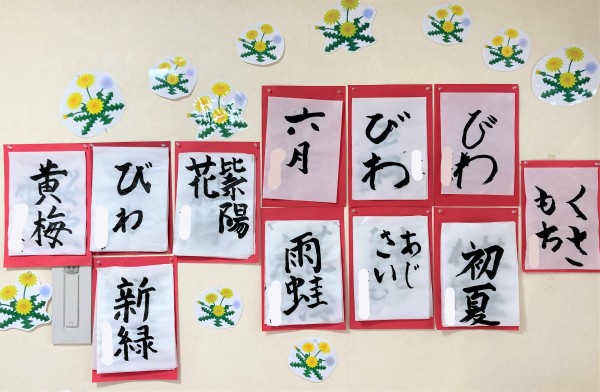 黄梅
びわ
紫陽
花
六月
びわ
びわ
くさ
もち
新緑
雨蛙
あじ
さい
初夏